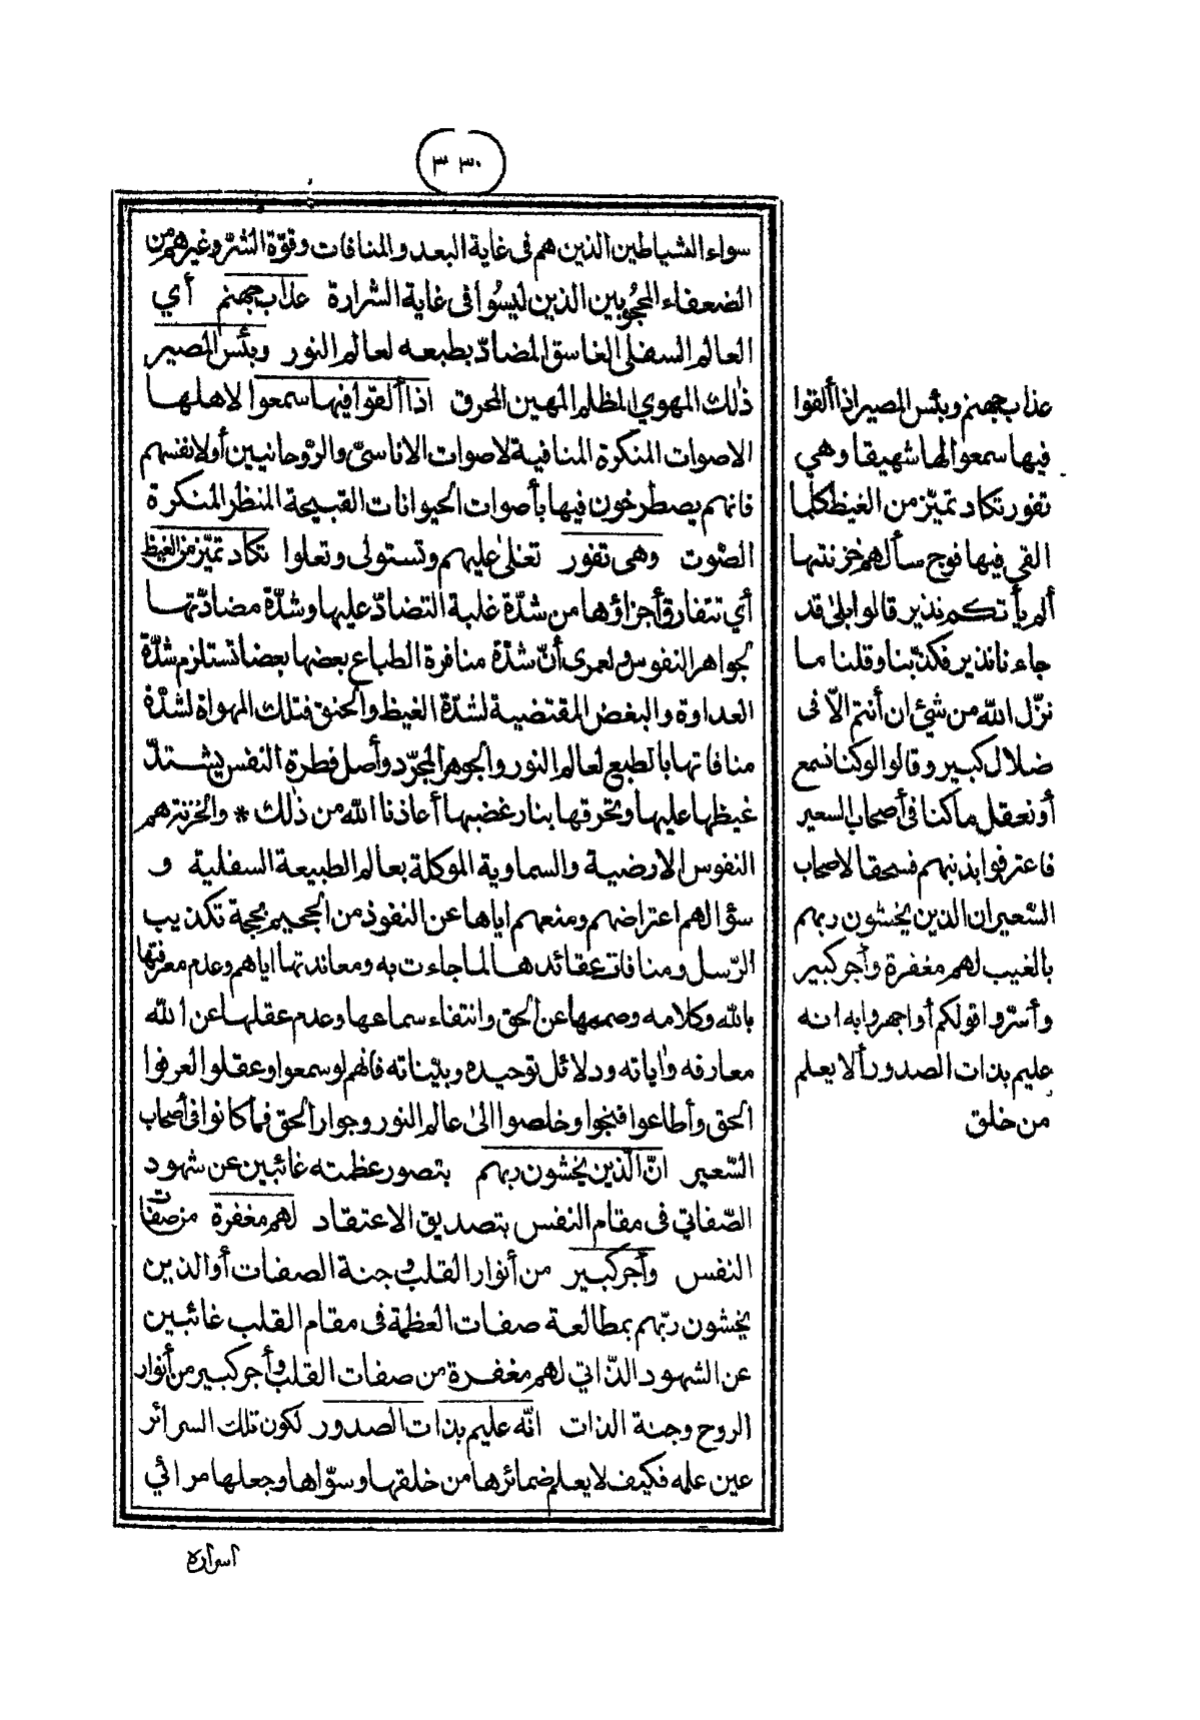 ٣٣٠
سواء الشياطين الذين هم فى غاية البعد والمنافات وقوّة الشرّ وغيرهم من
الضعفاء المحجُوبين الذين ليسُوا فى غاية الشرارة عذاب جهنم أي
العالم السفلى الغاسق المضادّ بطبعه لعالم النور وبئس المصير
ذٰلك المهوي المظلم المهين المحرق اذا ألقوا فيها سمعوا لاهلها
الاصوات المنكرة المنافية لاصوات الاناسىّ والرّوحانيين أو لانفسهم
فانهم يصطرخون فيها بأصوات الحيوانات القبيحة المنظر المنكرة
الصّوت وهى تفور تغلى عليهم وتستولى وتعلوا تكاد تميّز من الغيظ
أي تتفارق أجزاؤها من شدّة غلبة التضادّ عليها وشدّة مضادّتها
لجواهر النفوس ولعمرى أنّ شدّة منافرة الطباع بعضها بعضا تستلزم شدّة
العداوة والبغض المقتضية لشدّة الغيظ والحنق فتلك المهواة لشدّة
منافاتها بالطبع لعالم النور والجوهر المجرّد وأصل فطرة النفس يشتدّ
غيظها عليها وتحرقها بنار غضبها أعاذنا الله من ذٰلك * والخزنة هم
النفوس الارضية والسماوية الموكلة بعالم الطبيعة السفلية و
سؤالهم اعتراضهم ومنعهم اياها عن النفوذ من الجحيم بحجة تكذيب
الرّسل ومنافات عقائدها لما جاءت به ومعاندتها اياهم وعدم معرفتها
بالله وكلامه وصممها عن الحق وانتفاء سماعها وعدم عقلها عن الله
معارفه وٰاياته ودلائل توحيده وبيّناته فانهم لو سمعوا وعقلوا لعرفوا
الحق وأطاعوا فنجوا وخلصوا الىٰ عالم النور وجوار الحق فما كانوا فى أصحاب
السّعير انّ الّذين يخشون ربهم بتصور عظمته غائبين عن شهود
الصّفاتي فى مقام النفس بتصديق الاعتقاد لهم مغفرة من صفات
النفس وأجر كبير من أنوار القلب وجنة الصفات أو الذين
يخشون ربّهم بمطالعة صفات العظمة فى مقام القلب غائبين
عن الشهود الذّاتي لهم مغفرة من صفات القلب وأجر كبير من أنوار
الروح وجنة الذات انّه عليم بذات الصدور لكون تلك السرائر
عين علمه فكيف لا يعلم ضمائرها من خلقها وسوّاها وجعلها مرائي
اسراره
عذاب جهنم وبئس المصير اذا ألقوا
فيها سمعوا لها شهيقا وهي
تفور تكاد تميّز من الغيظ كلما
القي فيها فوج سألهم خزنتها
ألم يأتكم نذير قالوا بلىٰ قد
جاءنا نذير فكذّبنا وقلنا ما
نزّل الله من شئ ان أنتم الّا فى
ضلال كبير وقالوا لو كنا نسمع
أو نعقل ما كنا فى أصحاب السعير
فاعترفوا بذنبهم فسحقا لاصحاب
السّعير ان الذين يخشون ربهم
بالغيب لهم مغفرة وأجر كبير
وأسرّوا قولكم أو اجهروا به انه
عليم بذات الصدور ألا يعلم
من خلق